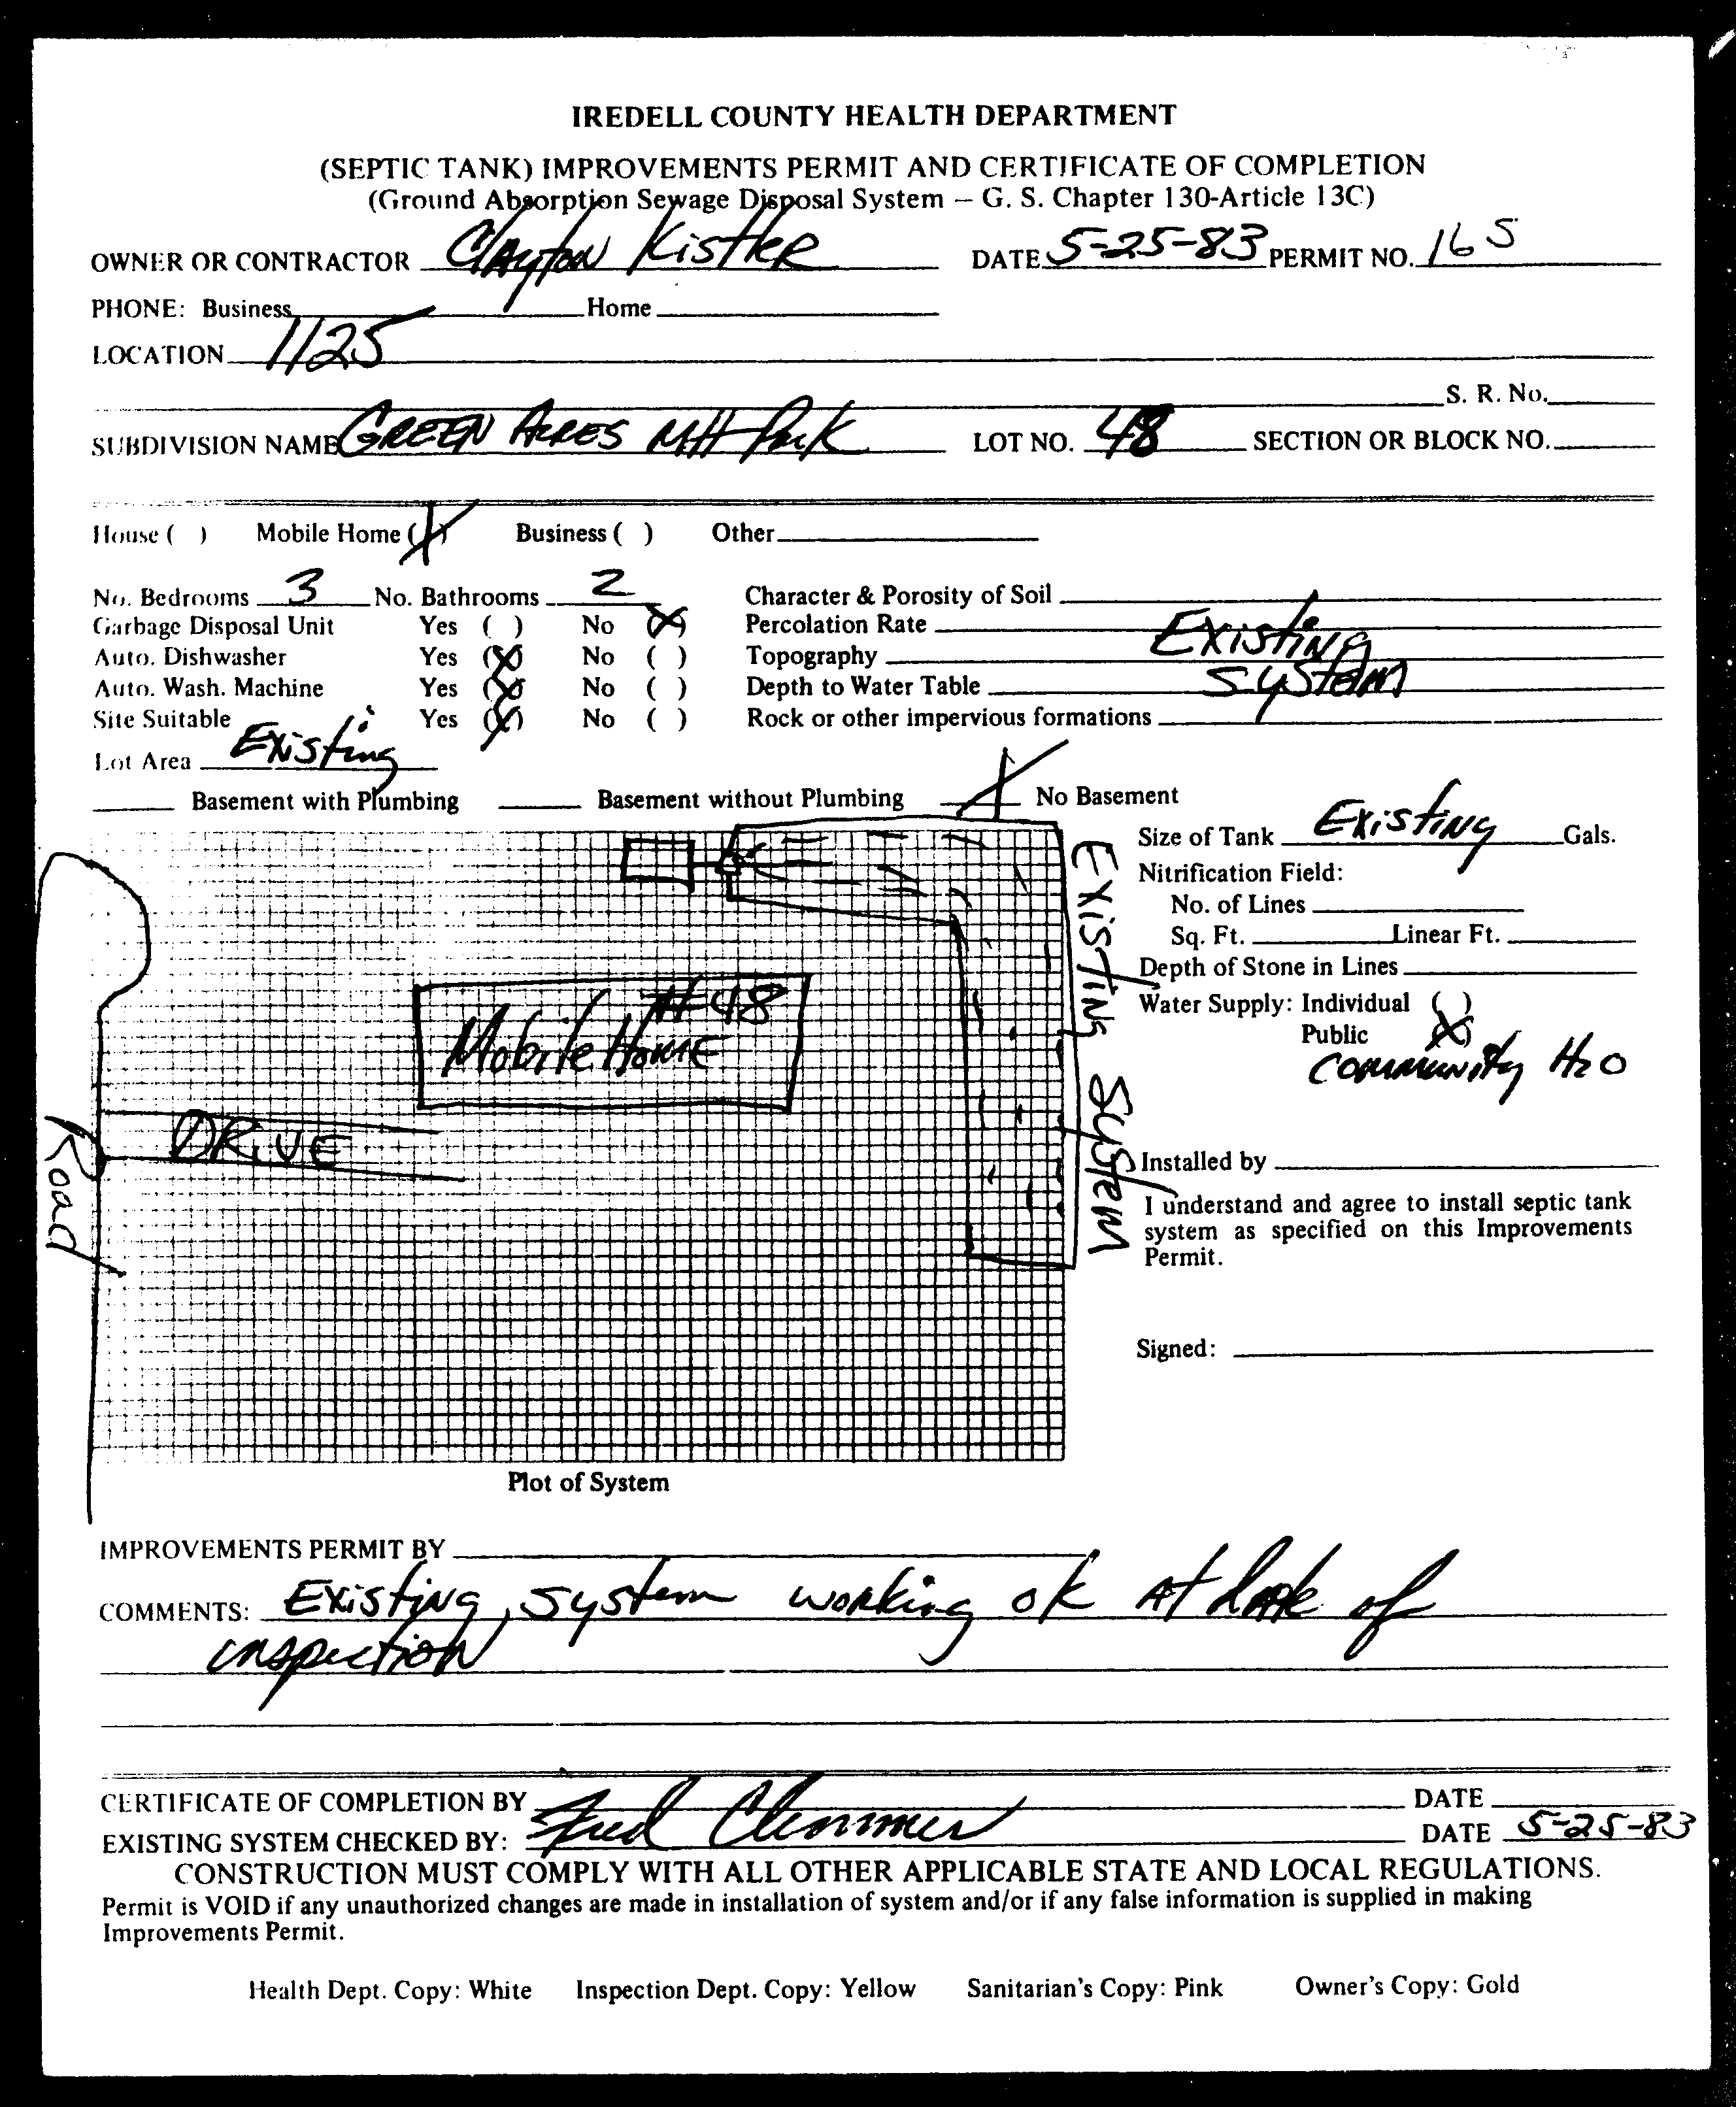 IREDELL COUNTY HEALTH DEPARTMENT
(SEPTIC TANK) IMPROVEMENTS PERMIT AND CERTIFICATE OF COMPLETION
(Ground Absorption Sewage Disposal System – G. S. Chapter 130-Article 13C)
OWNER OR CONTRACTOR Clayton Kistler DATE 5-25-83 PERMIT NO. 165
PHONE: Business Home
LOCATION 1125
S. R. No.
SUBDIVISION NAME GREEN ACRES MH Park LOT NO. 48 SECTION OR BLOCK NO.
House ( ) Mobile Home (X) Business ( ) Other
No. Bedrooms 3 No. Bathrooms 2 Character & Porosity of Soil
Garbage Disposal Unit Yes ( ) No (X) Percolation Rate Existing
Auto. Dishwasher Yes (X) No ( ) Topography
Auto. Wash. Machine Yes (X) No ( ) Depth to Water Table System
Site Suitable Yes (X) No ( ) Rock or other impervious formations
Lot Area Existing
Basement with Plumbing Basement without Plumbing X No Basement
Size of Tank Existing Gals.
Nitrification Field:
No. of Lines
Sq. Ft. Linear Ft.
Depth of Stone in Lines
Water Supply: Individual ( )
Public (X)
Community H2O
EXISTING SYSTEM
#48
Mobile Home
DRIVE
Road
Installed by
I understand and agree to install septic tank
system as specified on this Improvements
Permit.
Signed:
Plot of System
IMPROVEMENTS PERMIT BY
COMMENTS: Existing system working ok At date of
inspection
CERTIFICATE OF COMPLETION BY DATE
EXISTING SYSTEM CHECKED BY: Fred Clemmer DATE 5-25-83
CONSTRUCTION MUST COMPLY WITH ALL OTHER APPLICABLE STATE AND LOCAL REGULATIONS.
Permit is VOID if any unauthorized changes are made in installation of system and/or if any false information is supplied in making
Improvements Permit.
Health Dept. Copy: White Inspection Dept. Copy: Yellow Sanitarian's Copy: Pink Owner's Copy: Gold